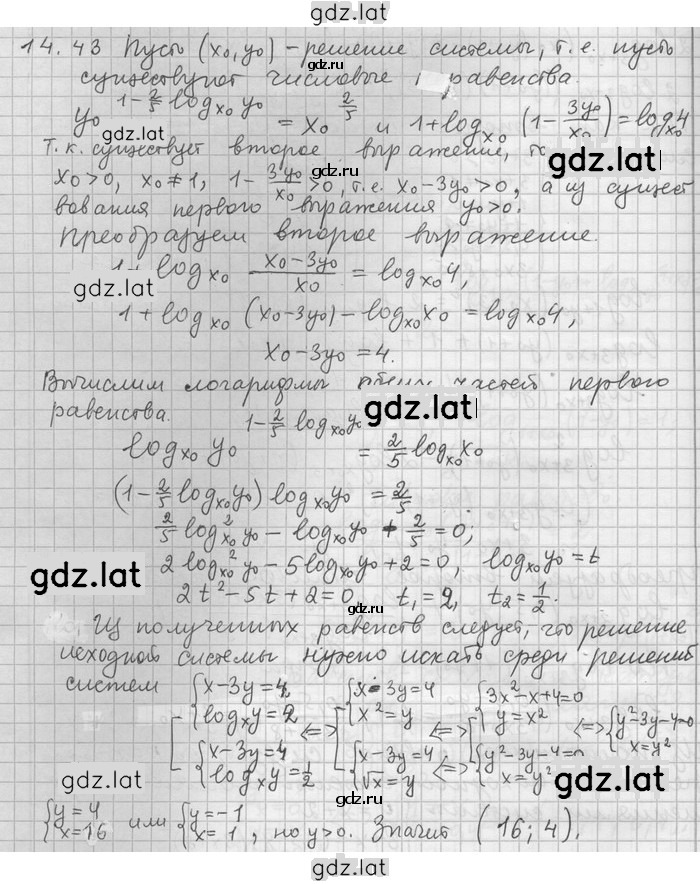 gdz.lat
14.43 Пусть (x₀, y₀) - решение системы, т.е. пусть
существуют числовые равенства.
y₀^(1-2/5 log_x₀ y₀) = x₀^(2/5) и 1+log_x₀ (1- 3y₀/x₀) = log_x₀ 4
gdz.lat
Т.к. существует второе выражение, то gdz.lat
x₀>0, x₀≠1, 1- 3y₀/x₀ >0, т.е. x₀-3y₀>0, а из сущест
вования первого выражения y₀>0.
Преобразуем второе выражение.
1+log_x₀ (x₀-3y₀)/x₀ = log_x₀ 4,
gdz.lat
1+log_x₀ (x₀-3y₀)-log_x₀ x₀ = log_x₀ 4,
x₀-3y₀=4.
Вычислим логарифмы частей первого
равенства. gdz.lat
log_x₀ y₀^(1-2/5 log_x₀ y₀) = 2/5 log_x₀ x₀
(1-2/5 log_x₀ y₀) log_x₀ y₀ = 2/5
2/5 log²_x₀ y₀ - log_x₀ y₀ + 2/5 = 0;
gdz.lat 2 log²_x₀ y₀ - 5 log_x₀ y₀ + 2 = 0, log_x₀ y₀ = t
2t²-5t+2=0, t₁=2, t₂=1/2.
gdz.lat
Из полученных равенств следует, что решение
исходной системы нужно искать среди решений
систем [ { x-3y=4, log_x y=2 ; { x-3y=4, log_x y=1/2 <=> [ { x-3y=4, x²=y ; { x-3y=4, √x=y <=> [ { 3x²-x+4=0, y=x² ; { y²-3y-4=0, x=y² <=> { y²-3y-4=0, x=y²
gdz.lat gdz.lat gdz.lat
{ y=4, x=16 или { y=-1, x=1, но y>0. Значит (16; 4).
gdz.lat